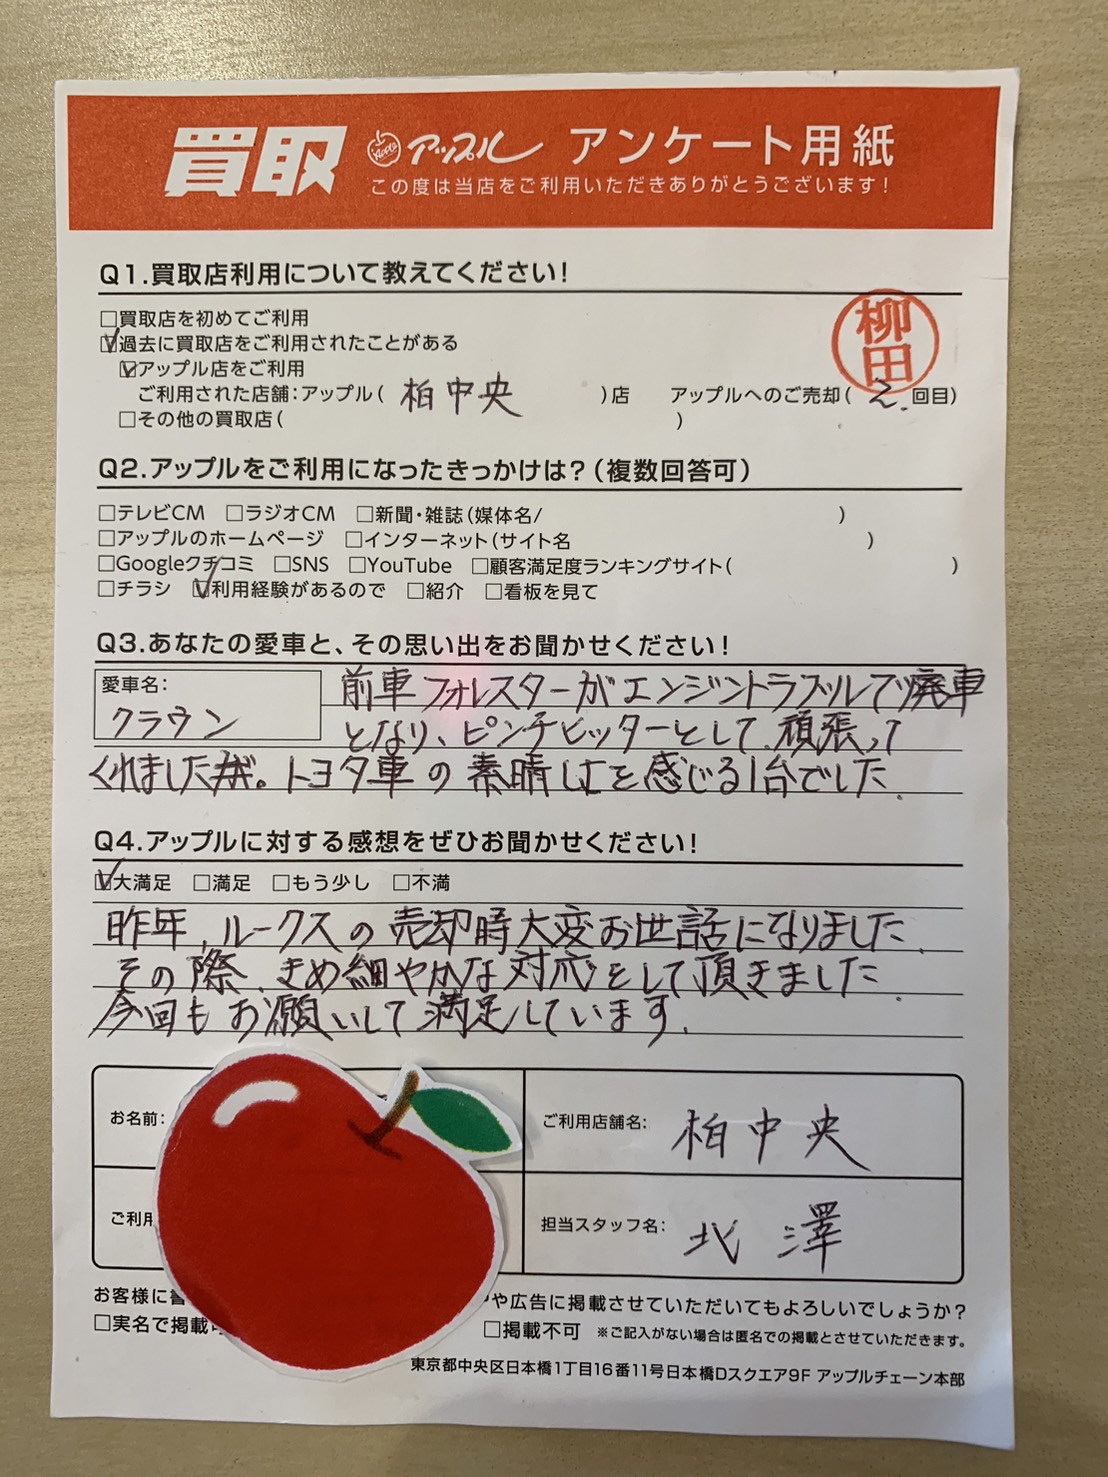 買取 Apple アップル アンケート用紙
この度は当店をご利用いただきありがとうございます！
Q1.買取店利用について教えてください！
□買取店を初めてご利用
☑過去に買取店をご利用されたことがある
☑アップル店をご利用
柳田
ご利用された店舗：アップル（ 柏中央 ）店 アップルへのご売却（ 2. 回目）
□その他の買取店（ ）
Q2.アップルをご利用になったきっかけは？（複数回答可）
□テレビCM □ラジオCM □新聞・雑誌（媒体名/ ）
□アップルのホームページ □インターネット（サイト名 ）
□Googleクチコミ □SNS □YouTube □顧客満足度ランキングサイト（ ）
□チラシ ☑利用経験があるので □紹介 □看板を見て
Q3.あなたの愛車と、その思い出をお聞かせください！
愛車名：
クラウン
前車フォレスターがエンジントラブルで廃車
となり、ピンチヒッターとして頑張って
くれました。トヨタ車の素晴しさを感じる1台でした.
Q4.アップルに対する感想をぜひお聞かせください！
☑大満足 □満足 □もう少し □不満
昨年,ルークスの売却時大変お世話になりました.
その際,きめ細やかな対応をして頂きました.
今回もお願いして満足しています.
お名前：
ご利用店舗名： 柏中央
ご利用
担当スタッフ名： 北澤
お客様に や広告に掲載させていただいてもよろしいでしょうか？
□実名で掲載 □掲載不可 ※ご記入がない場合は匿名での掲載とさせていただきます。
東京都中央区日本橋1丁目16番11号日本橋Dスクエア9F アップルチェーン本部